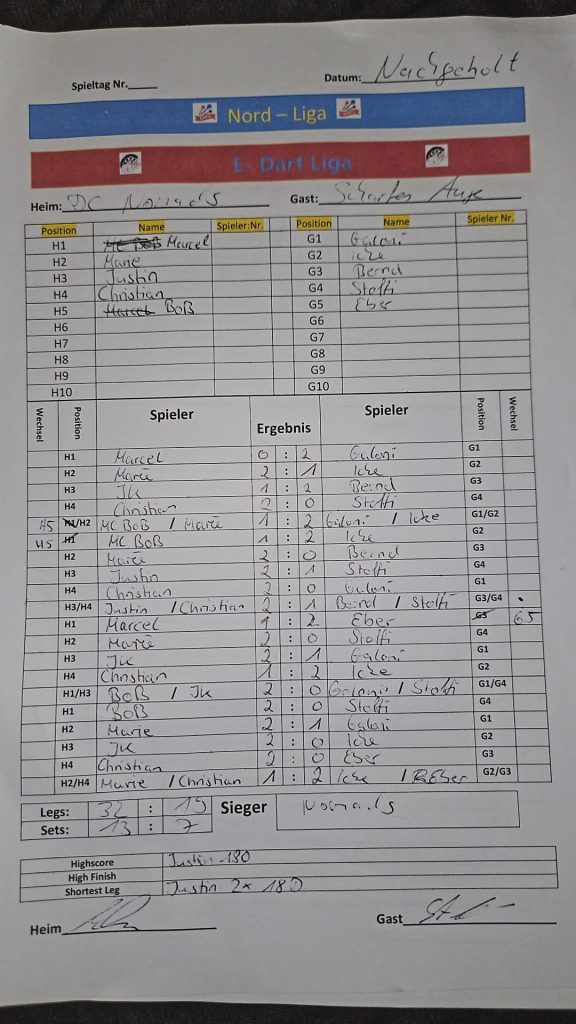 Spieltag Nr.____ Datum: Nachgeholt
Nord – Liga
E- Dart Liga
Heim: DC Nomads Gast: Scharfes Auge
Position Name Spieler:Nr. Position Name Spieler Nr.
H1 MC BOB Marcel G1 Galoni
H2 Marie G2 Icke
H3 Justin G3 Bernd
H4 Christian G4 Stoffi
H5 Marcel BOB G5 Eber
H6 G6
H7 G7
H8 G8
H9 G9
H10 G10
Wechsel Position Spieler Ergebnis Spieler Position Wechsel
H1 Marcel 0 : 2 Galoni G1
H2 Marie 2 : 1 Icke G2
H3 JK 1 : 2 Bernd G3
H4 Christian 2 : 0 Stoffi G4
H5 H1/H2 MC BOB / Marie 1 : 2 Galoni / Icke G1/G2
H5 H1 MC BOB 1 : 2 Icke G2
H2 Marie 2 : 0 Bernd G3
H3 Justin 2 : 1 Stoffi G4
H4 Christian 2 : 0 Galoni G1
H3/H4 Justin / Christian 2 : 1 Bernd / Stoffi G3/G4
H1 Marcel 1 : 2 Eber G3 G5
H2 Marie 2 : 0 Stoffi G4
H3 JK 2 : 1 Galoni G1
H4 Christian 1 : 2 Icke G2
H1/H3 BOB / JK 2 : 0 Galoni / Stoffi G1/G4
H1 BOB 2 : 0 Stoffi G4
H2 Marie 2 : 1 Galoni G1
H3 JK 2 : 0 Icke G2
H4 Christian 2 : 0 Eber G3
H2/H4 Marie / Christian 1 : 2 Icke / Eber G2/G3
Legs: 32 : 19 Sieger Nomads
Sets: 13 : 7
Highscore Justin 180
High Finish
Shortest Leg Justin 2x 18D
Heim Gast